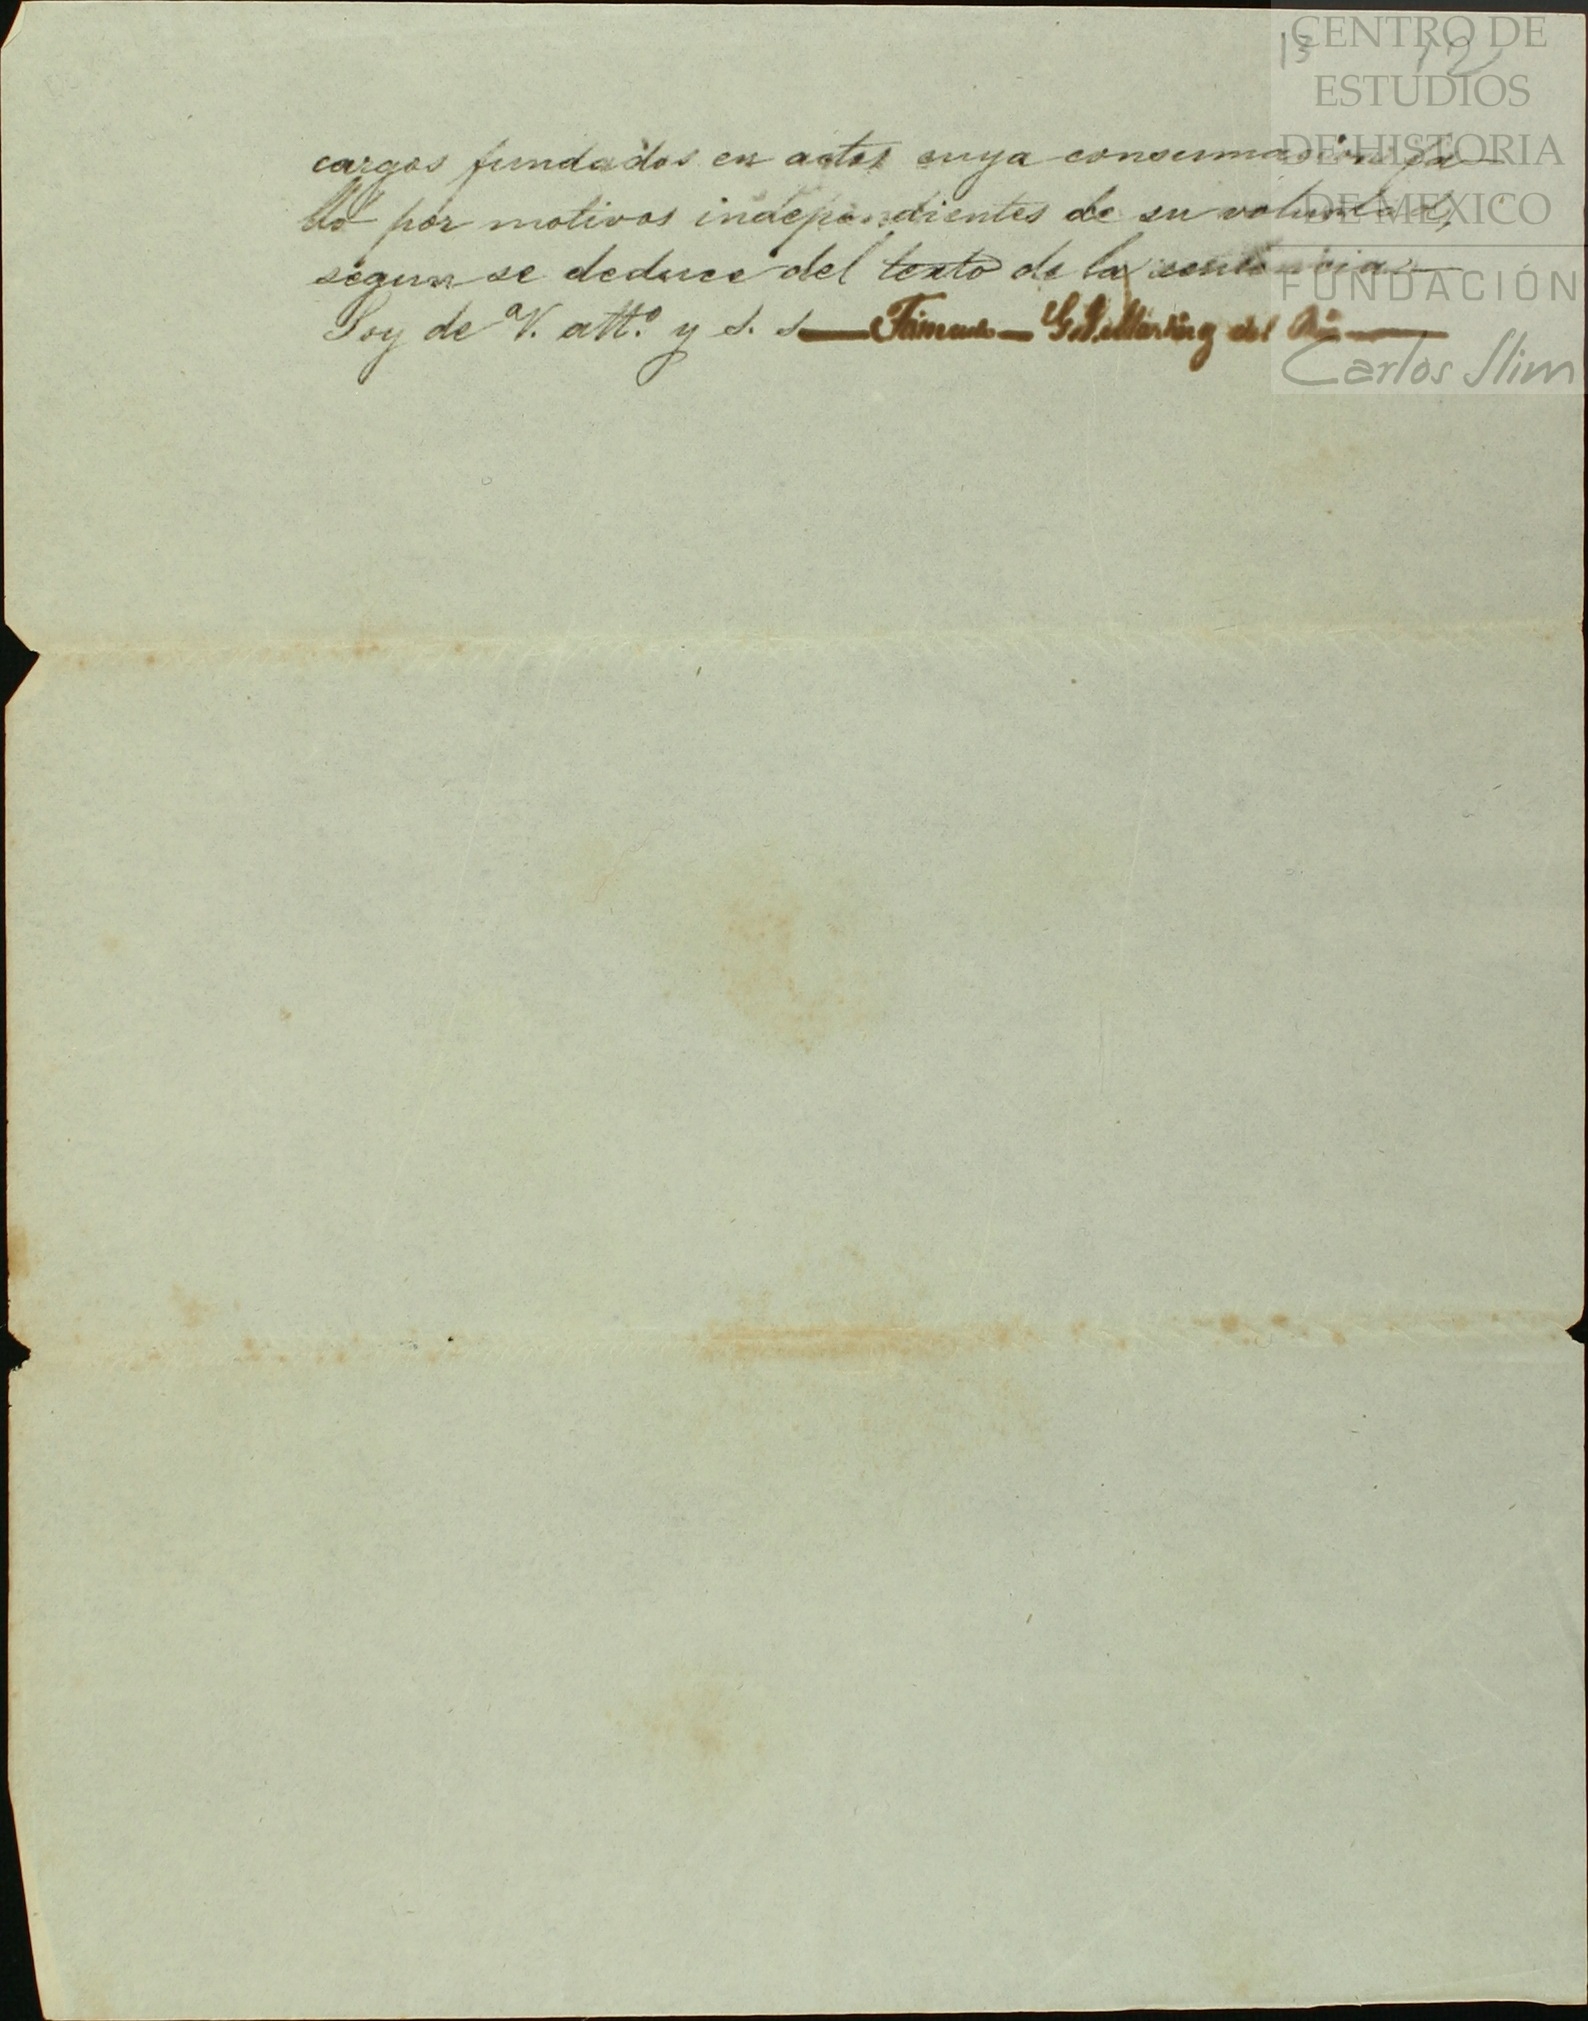 13 12
cargos fundados en actos cuya consumacion fa-
lló por motivos independientes de su voluntad,
segun se deduce del texto de la sentencia.—
Soy de V. att.º y s. s.— Firmado — G. Martínez del Rio —
CENTRO DE
ESTUDIOS
DE HISTORIA
DE MEXICO
FUNDACIÓN
Carlos Slim